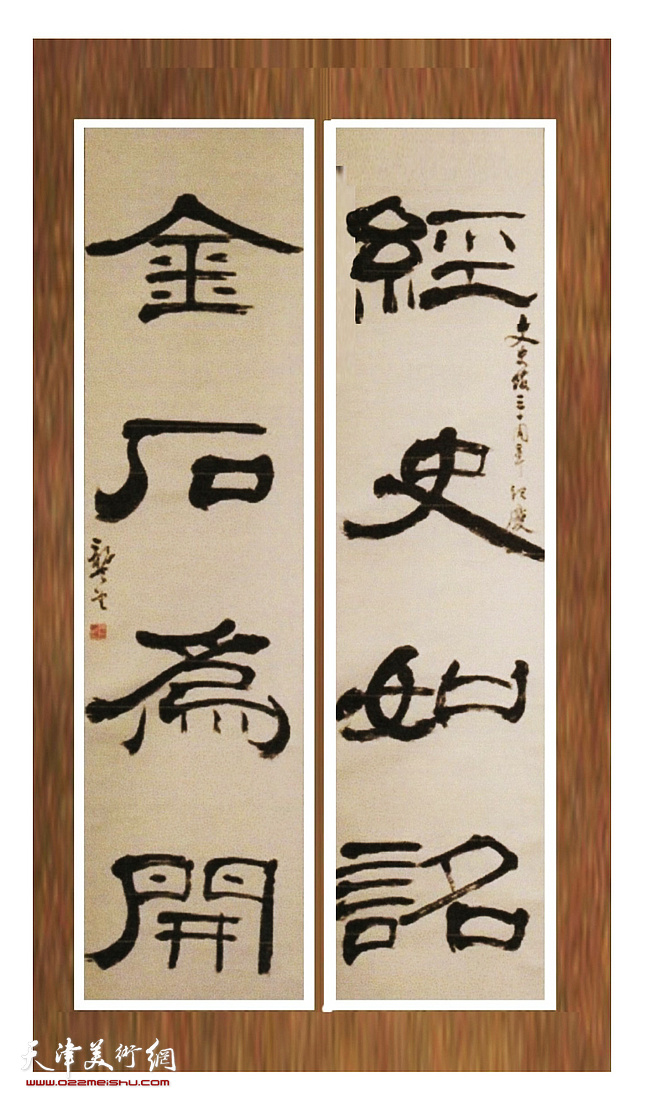 經史如詺
文史館三十周年紀慶
金石為開
龔望
天津美術網
www.022meishu.com